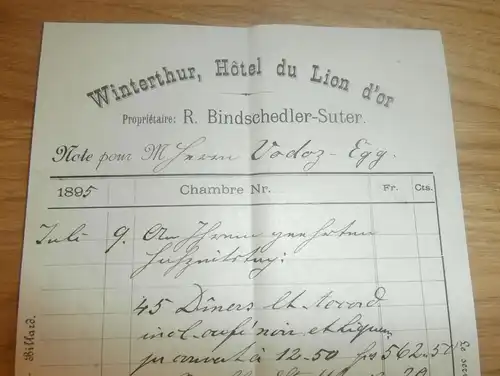 Winterthur, Hôtel du Lion d'or
Propriétaire: R. Bindschedler-Suter.
Note pour M Herrn Vodoz-Egg.
1895 Chambre Nr. Fr. Cts.
Juli 9. An Ihrem geehrten
Hochzeitstag:
45 Dîners lt. Accord
incl. café noir et liqueur
à 12-50 frs 562.50
Billard.